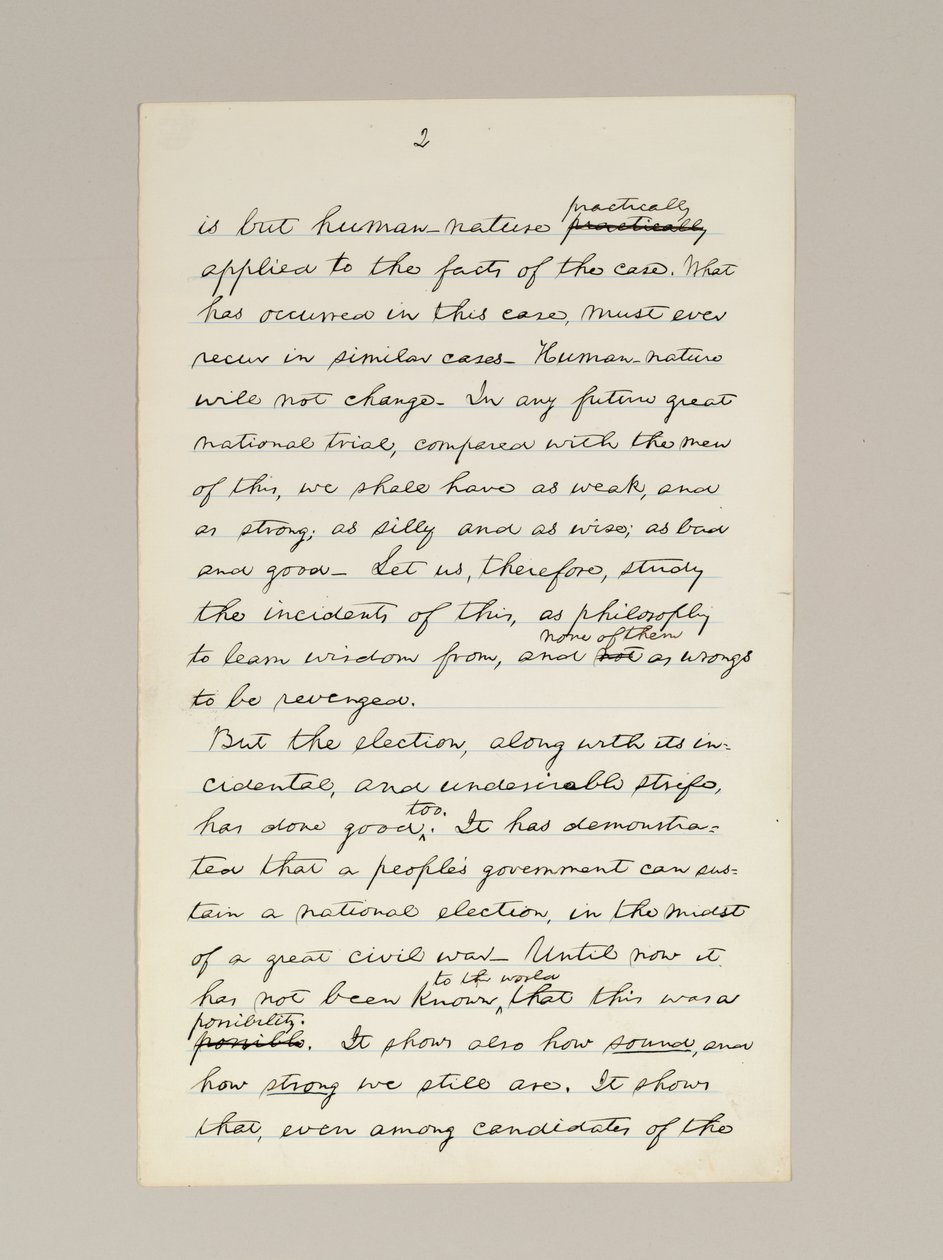 2
practically
is but human-nature practically
applied to the facts of the case. What
has occurred in this case, must ever
recur in similar cases- Human-nature
will not change- In any future great
national trial, compared with the men
of this, we shall have as weak, and
as strong; as silly and as wise; as bad
and good- Let us, therefore, study
the incidents of this, as philosophy
none of them
to learn wisdom from, and not as wrongs
to be revenged.
But the election, along with its in=
cidental, and undesirable strife,
too.
has done good^. It has demonstra=
ted that a people's government can sus=
tain a national election, in the midst
of a great civil war- Until now it
to the world
has not been known^ that this was a
possibility.
possible. It shows also how sound, and
how strong we still are. It shows
that, even among candidates of the